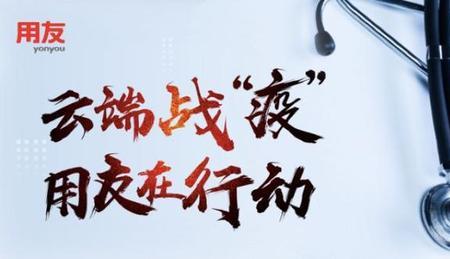 用友
yonyou
云端战“疫”
用友在行动